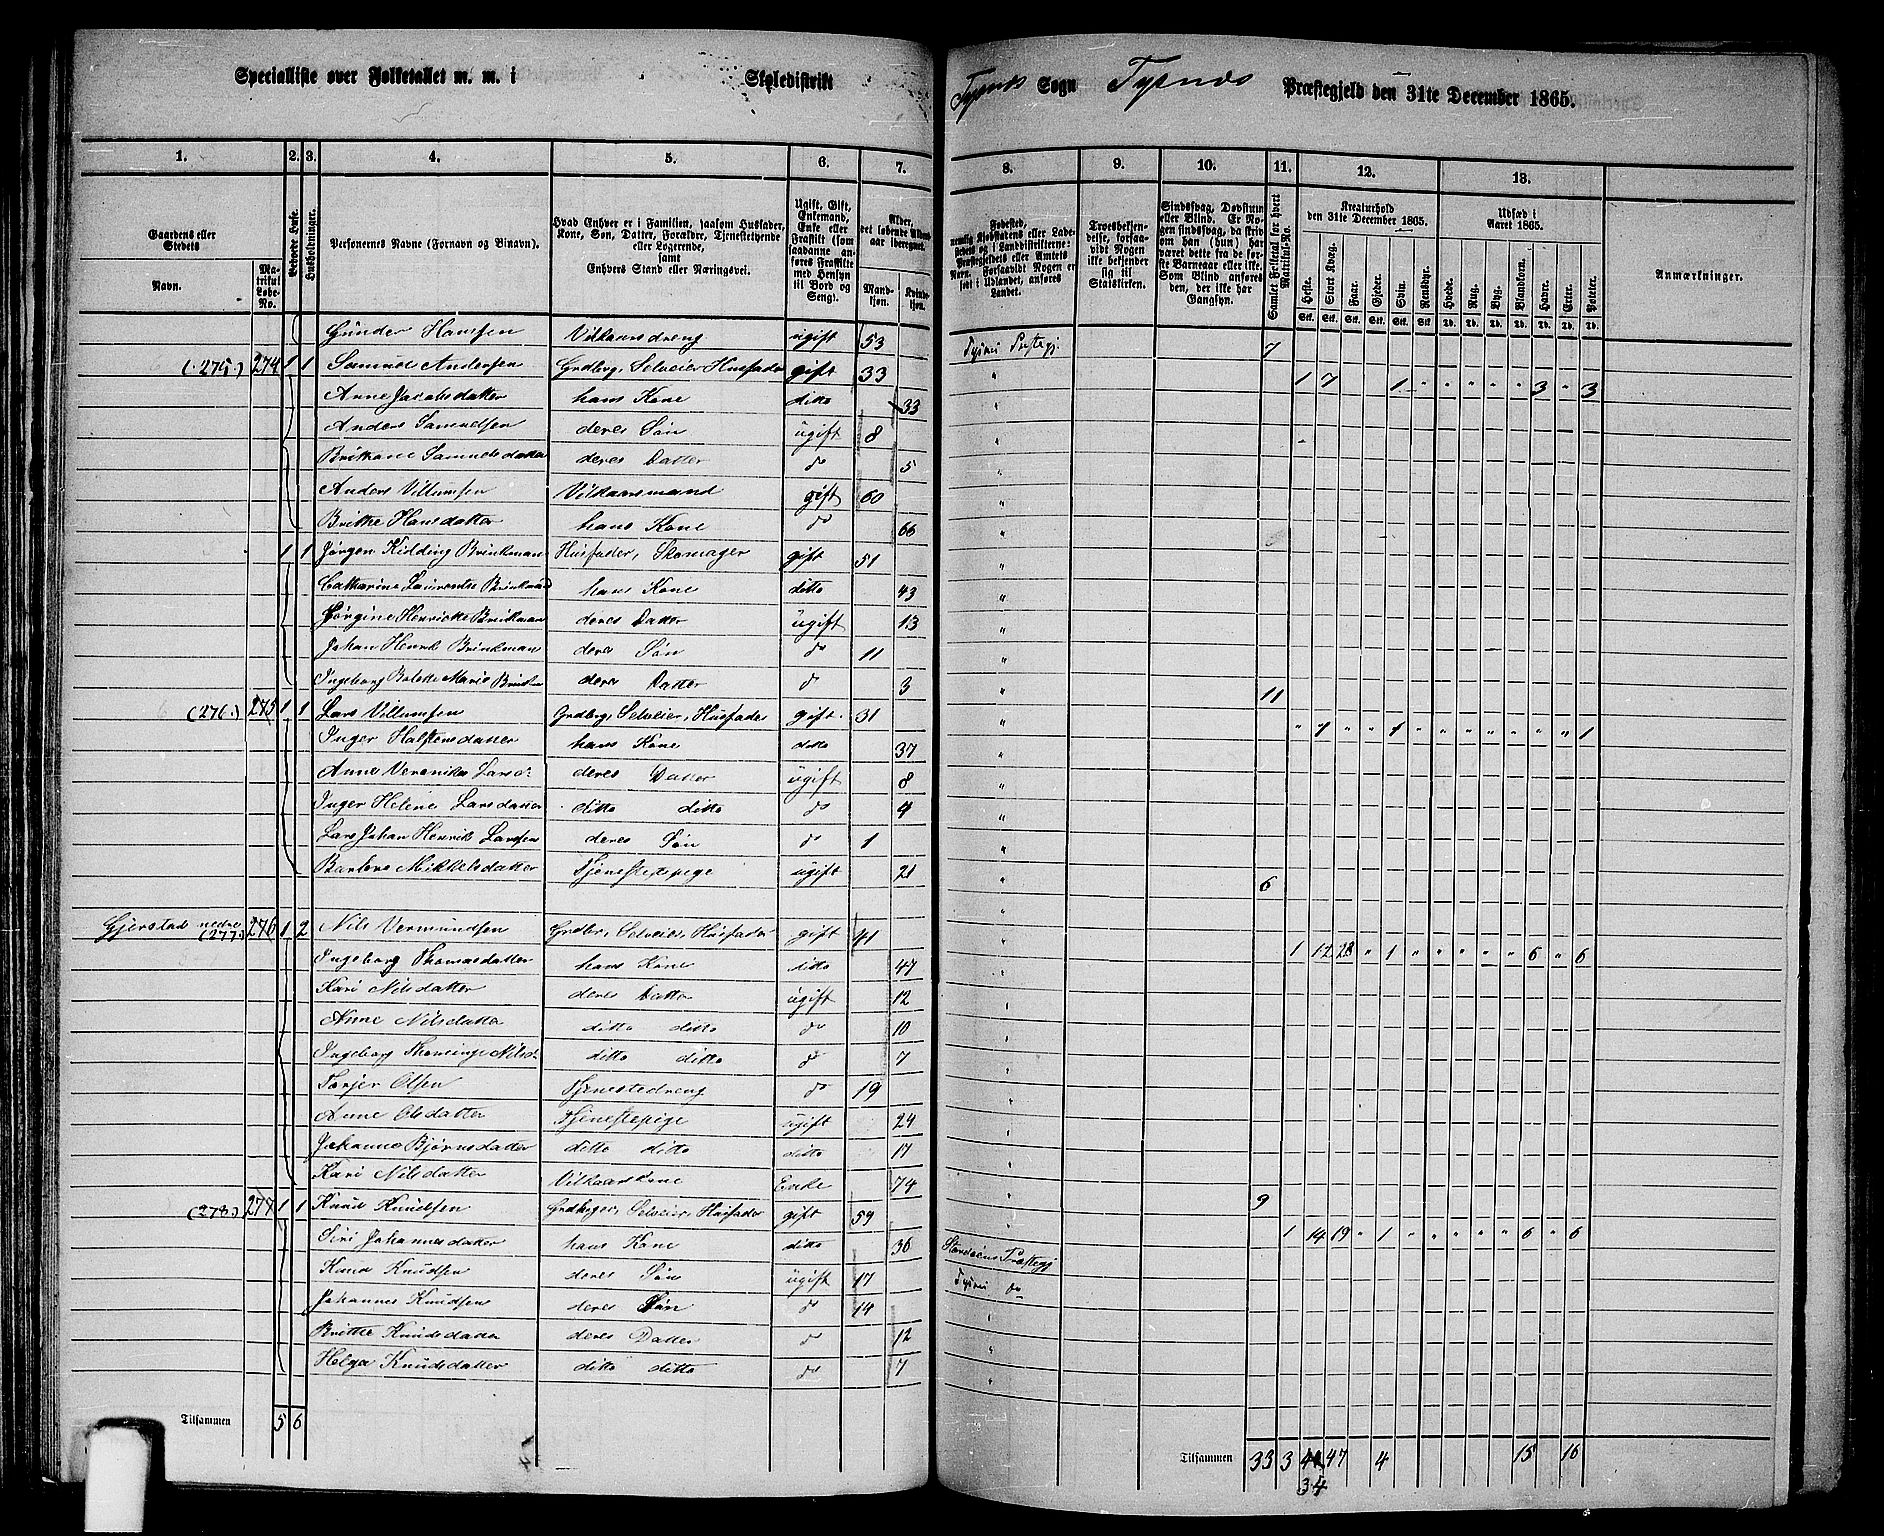 Specialliste over Folketallet m. m. i Skoledistrikt Tysnes Sogn Tysnes Præstegjeld den 31te December 1865.
1. 2. 3. 4. 5. 6. 7. 8. 9. 10. 11. 12. 13.
Gaardens eller Stedets
Navn.
Matrikul Løbe-No.
Beboede Huse.
Husholdninger.
Personernes Navne (Fornavn og Tilnavn).
Hvad Enhver er i Familien, saasom Husfader, Kone, Søn, Datter, Forældre, Tjenestetyende eller Logerende, samt Enhvers Stand eller Næringsvei.
Ugift, Gift, Enkemand, Enke eller Fraskilt (som saadanne anføres Fraskilte med Hensyn til Bord og Seng).
Alder, det løbende Alders-aar iberegnet.
Mandkjøn. Kvindekjøn.
Fødested,
Troesbekjendelse, forsaavidt Nogen ikke bekjender sig til Statskirken.
Sindssvag, Døvstum eller Blind.
Samlet Folketal for hvert Matrikul-No.
Kreaturhold den 31te December 1865.
Heste. Stort Kvæg. Faar. Gjeder. Svin. Rensdyr.
Udsæd i Aaret 1865.
Hvede. Rug. Byg. Blandkorn. Havre. Erter. Poteter.
Anmærkninger.
Gunder Hansen Vilkaarsdreng ugift 53 Tysnes Præstegj. 7
(275.) 274 1 1 Samuel Andersen Grdbrg, Selveier, Husfader gift 33 " 1 7 1 " " " " " 3 " 3
Anne Jacobsdatter hans Kone ditto 33 "
Anders Samuelsen deres Søn ugift 8 "
Brithane Samuelsdatter deres Datter do 5 "
Anders Villumsen Vilkaarsmand gift 60 "
Brithe Hansdatter hans Kone do 66 "
1 1 Jørgen Kidding Brinkman Husfader, Skomager gift 51 "
Catharina Laurentse Brinkmand hans Kone ditto 43 "
Jørgine Henrikke Brinkman deres Datter ugift 13 "
Johan Henrik Brinkman deres Søn do 11 "
Ingeborg Bolette Marie Brink deres Datter do 3 " 11
(276.) 275 1 1 Lars Villumsen Grdbrg, Selveier, Husfader gift 31 " " 7 " " 1 " " " " " " " 1
Inger Halstensdatter hans Kone ditto 37 "
Anne Veronika Larsd: deres Datter ugift 8 "
Inger Helene Larsdatter ditto ditto do 4 "
Lars Johan Henrik Larssen deres Søn do 1 "
Barbro Mikkelsdatter Tjenestepige ugift 21 " 6
Gjerstad nedre (277.) 276 1 2 Nils Vermundsen Grdbr, Selveier, Husfader gift 41 " 1 12 28 " 1 " " " " " 6 " 6
Ingeborg Thomasdatter hans Kone ditto 47 "
Kari Nilsdatter deres Datter ugift 12 "
Anne Nilsdatter ditto ditto do 10 "
Ingeborg Thomine Nilsd: ditto ditto do 7 "
Torjer Olsen Tjenestedreng do 19 "
Anne Olsdatter Tjenestepige ugift 24 "
Johanne Bjørnsdatter ditto ditto ditto 17 "
Kari Nilsdatter Vilkaarskone Enke 74 " 9
(278.) 277 1 1 Knud Knudsen Grdbrger, Selveier, Husfader gift 59 " 1 14 19 " 1 " " " " " 6 " 6
Siri Johannesdatter hans Kone ditto 36 Præstegj
Knud Knudsen deres Søn ugift 17 Tysnes do
Johannes Knudsen deres Søn do 14 "
Brithe Knudsdatter deres Datter do 12 "
Helga Knudsdatter ditto ditto do 7 "
Tilsammen 5 6 Tilsammen 33 3 47 4 15 16
34